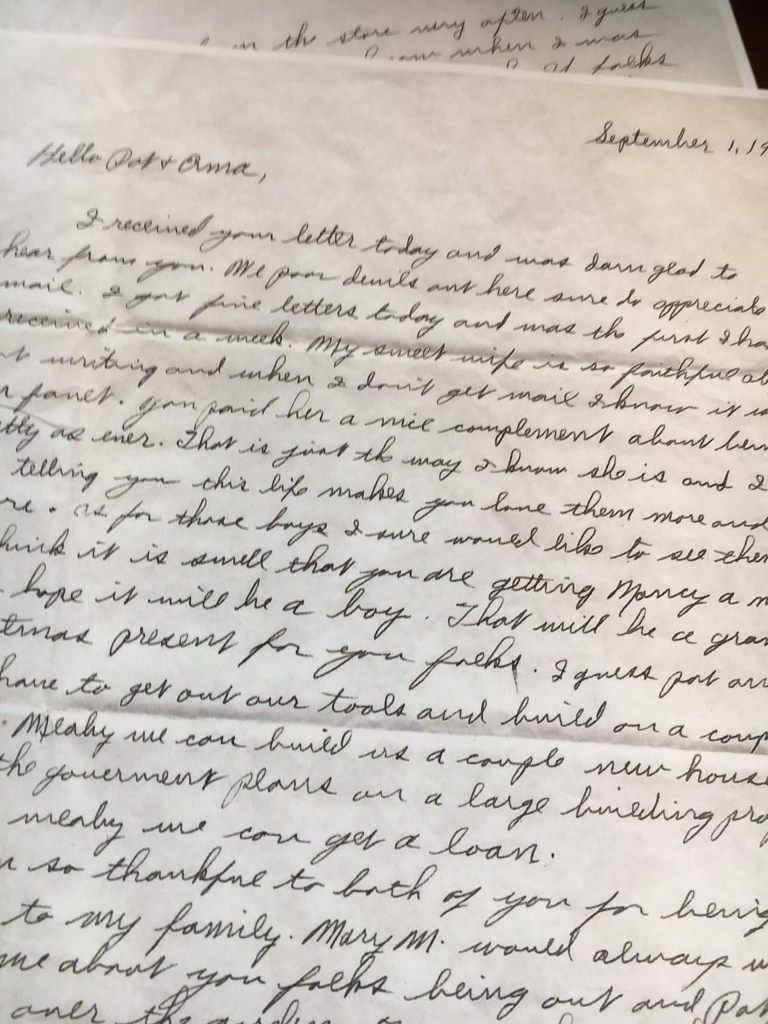 in the store very often. I guess
when I was
folks
September 1, 19
Hello Pat & Oma,
I received your letter today and was darn glad to
hear from you. We poor devils out here sure do appreciate
mail. I got five letters today and was the first I ha
received in a week. My sweet wife is so faithful ab
ut writing and when I don't get mail I know it is
r fault. You paid her a nice complement about bein
etty as ever. That is just the way I know she is and I
telling you this life makes you love them more and
re. As for those boys I sure would like to see them
hink it is swell that you are getting Mancy a n
hope it will be a boy. That will be a gran
tmas present for you folks. I guess pat an
have to get out our tools and build on a coup
. Meaby we can build us a couple new house
the goverment plans on a large building pro
meaby we can get a loan.
so thankful to both of you for being
to my family. Mary M. would always w
me about you folks being out and Pat
over the garden